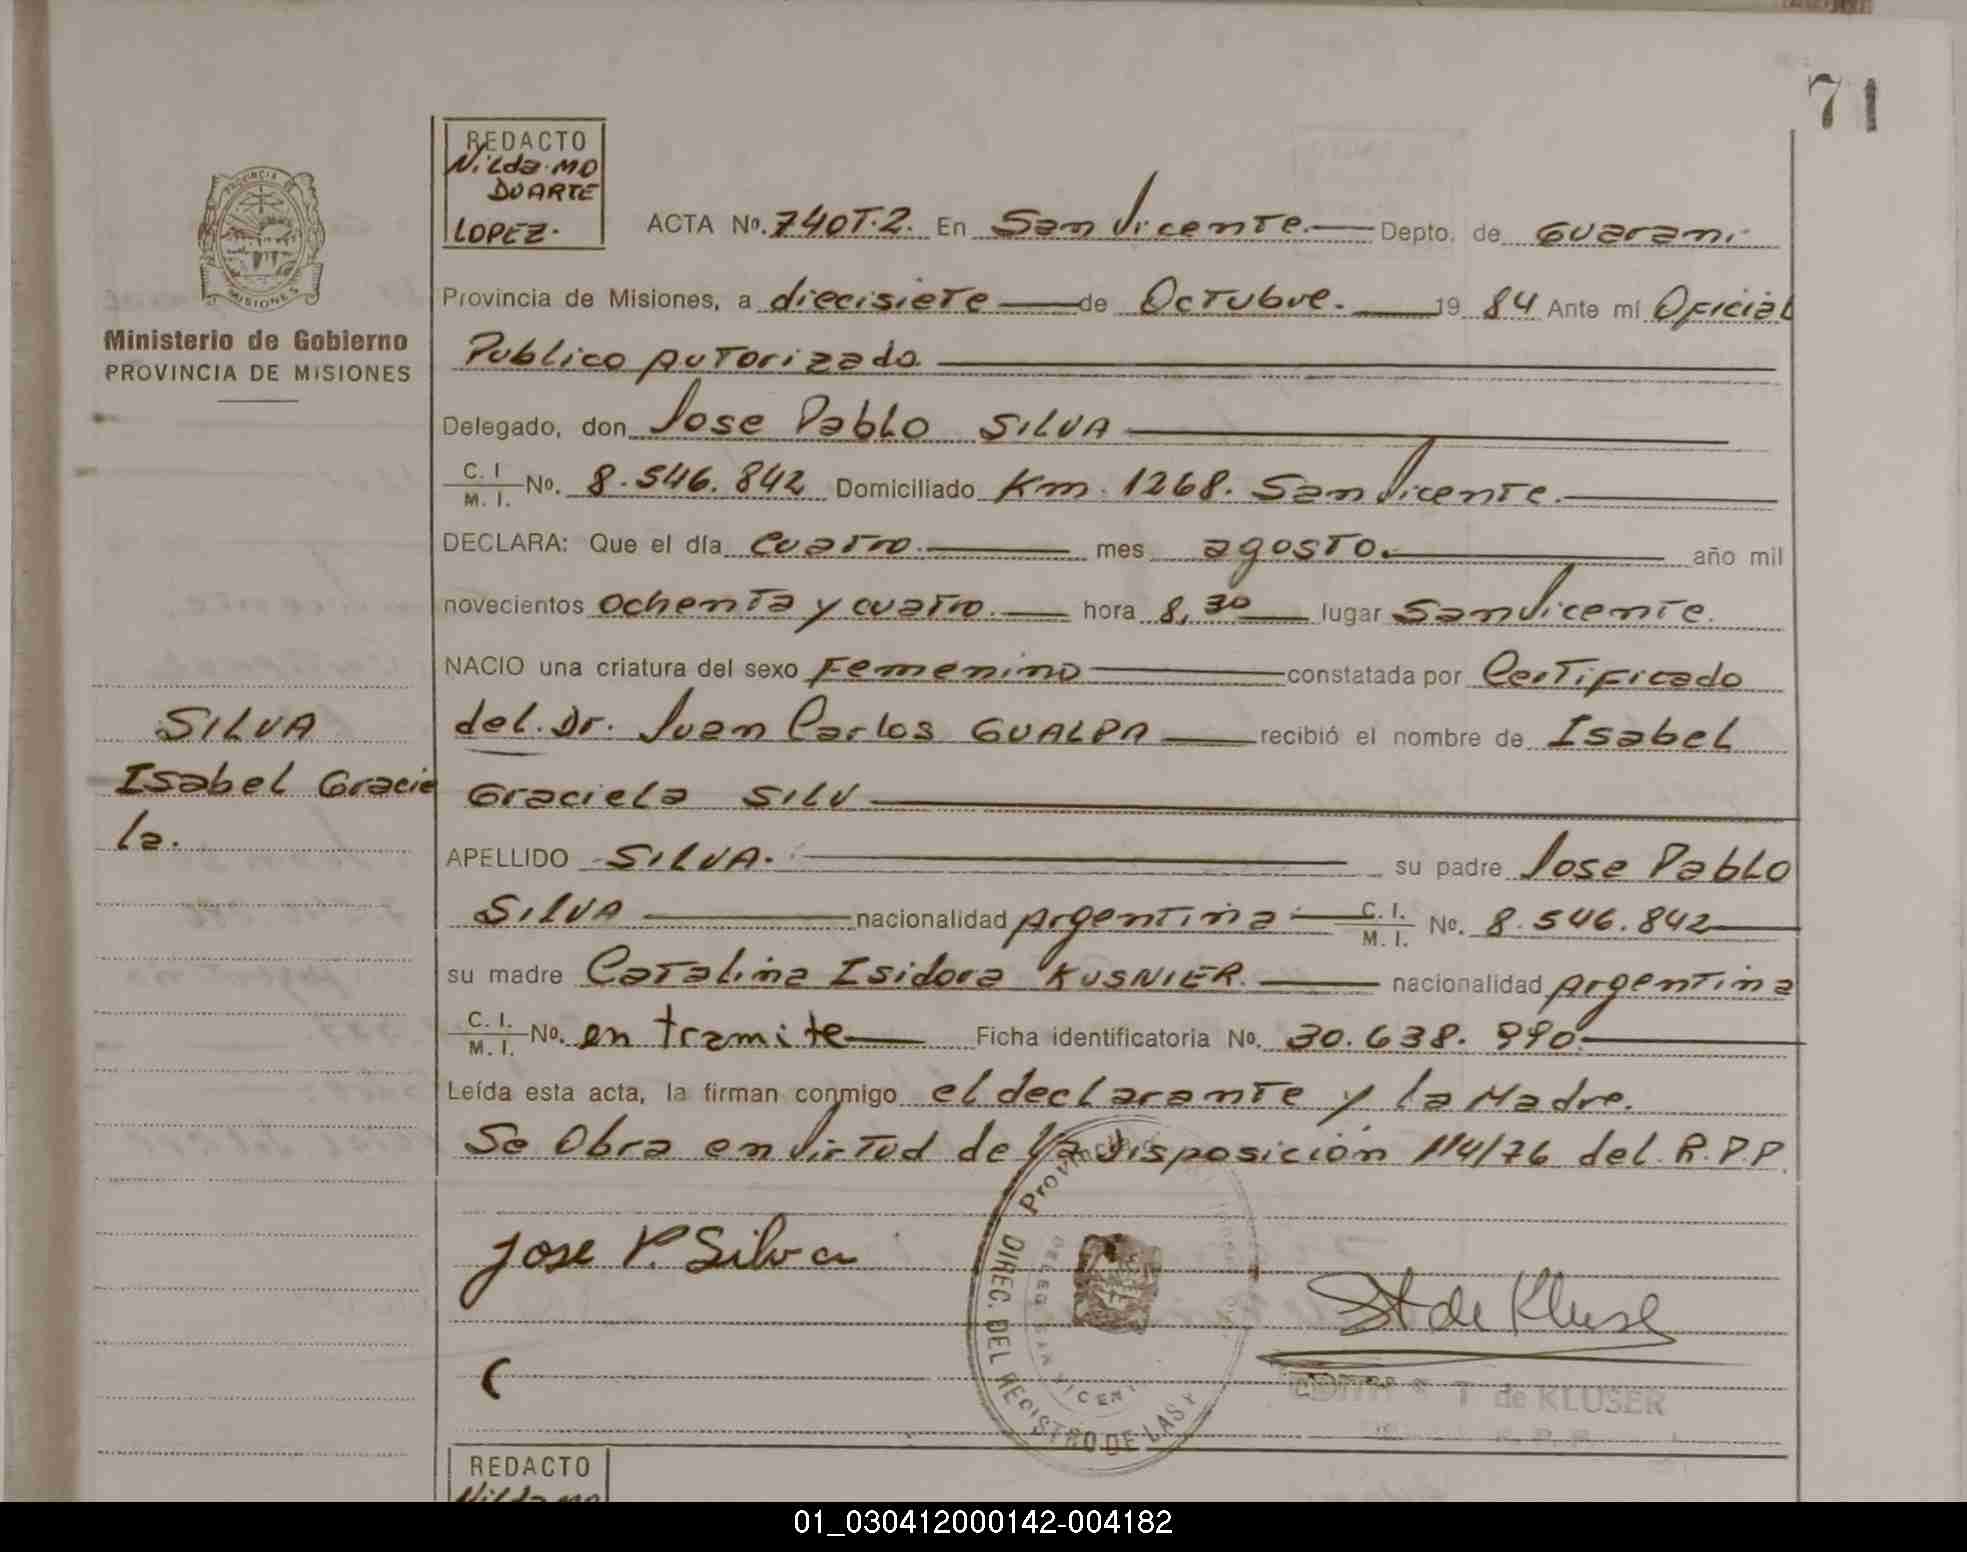 71
REDACTO
Nilda. MO
DUARTE
LOPEZ.
PROVINCIA DE
MISIONES
Ministerio de Gobierno
PROVINCIA DE MISIONES
ACTA No. 740T.2. En San Vicente. Depto. de Guarani
Provincia de Misiones, a diecisiete de Octubre. 19 84 Ante mí Oficial
Publico Autorizado.
Delegado, don Jose Pablo SILVA
C. I. M. I. No. 8.546.842 Domiciliado Km. 1268. San Vicente.
DECLARA: Que el día cuatro. mes agosto. año mil
novecientos ochenta y cuatro. hora 8,30 lugar San Vicente.
NACIO una criatura del sexo Femenino constatada por Certificado
del. Dr. Juan Carlos GUALPA recibió el nombre de Isabel
Graciela SILV
APELLIDO SILVA. su padre Jose Pablo
SILVA nacionalidad Argentina C. I. M. I. No. 8.546.842
su madre Catalina Isidora KUSNIER. nacionalidad Argentina
C. I. M. I. No. en tramite Ficha identificatoria No. 30.638.990.
Leída esta acta, la firman conmigo el declarante y la Madre.
Se Obra en virtud de la disposición 114/76 del. R.P.P.
SILVA
Isabel Gracie
la.
Jose P. Silva
Provincia
DIREC. DEL REGISTRO DE LAS
DELEG. SAN VICENTE
St de Kluser
T de KLUSER
REDACTO
Nilda MO
01_030412000142-004182